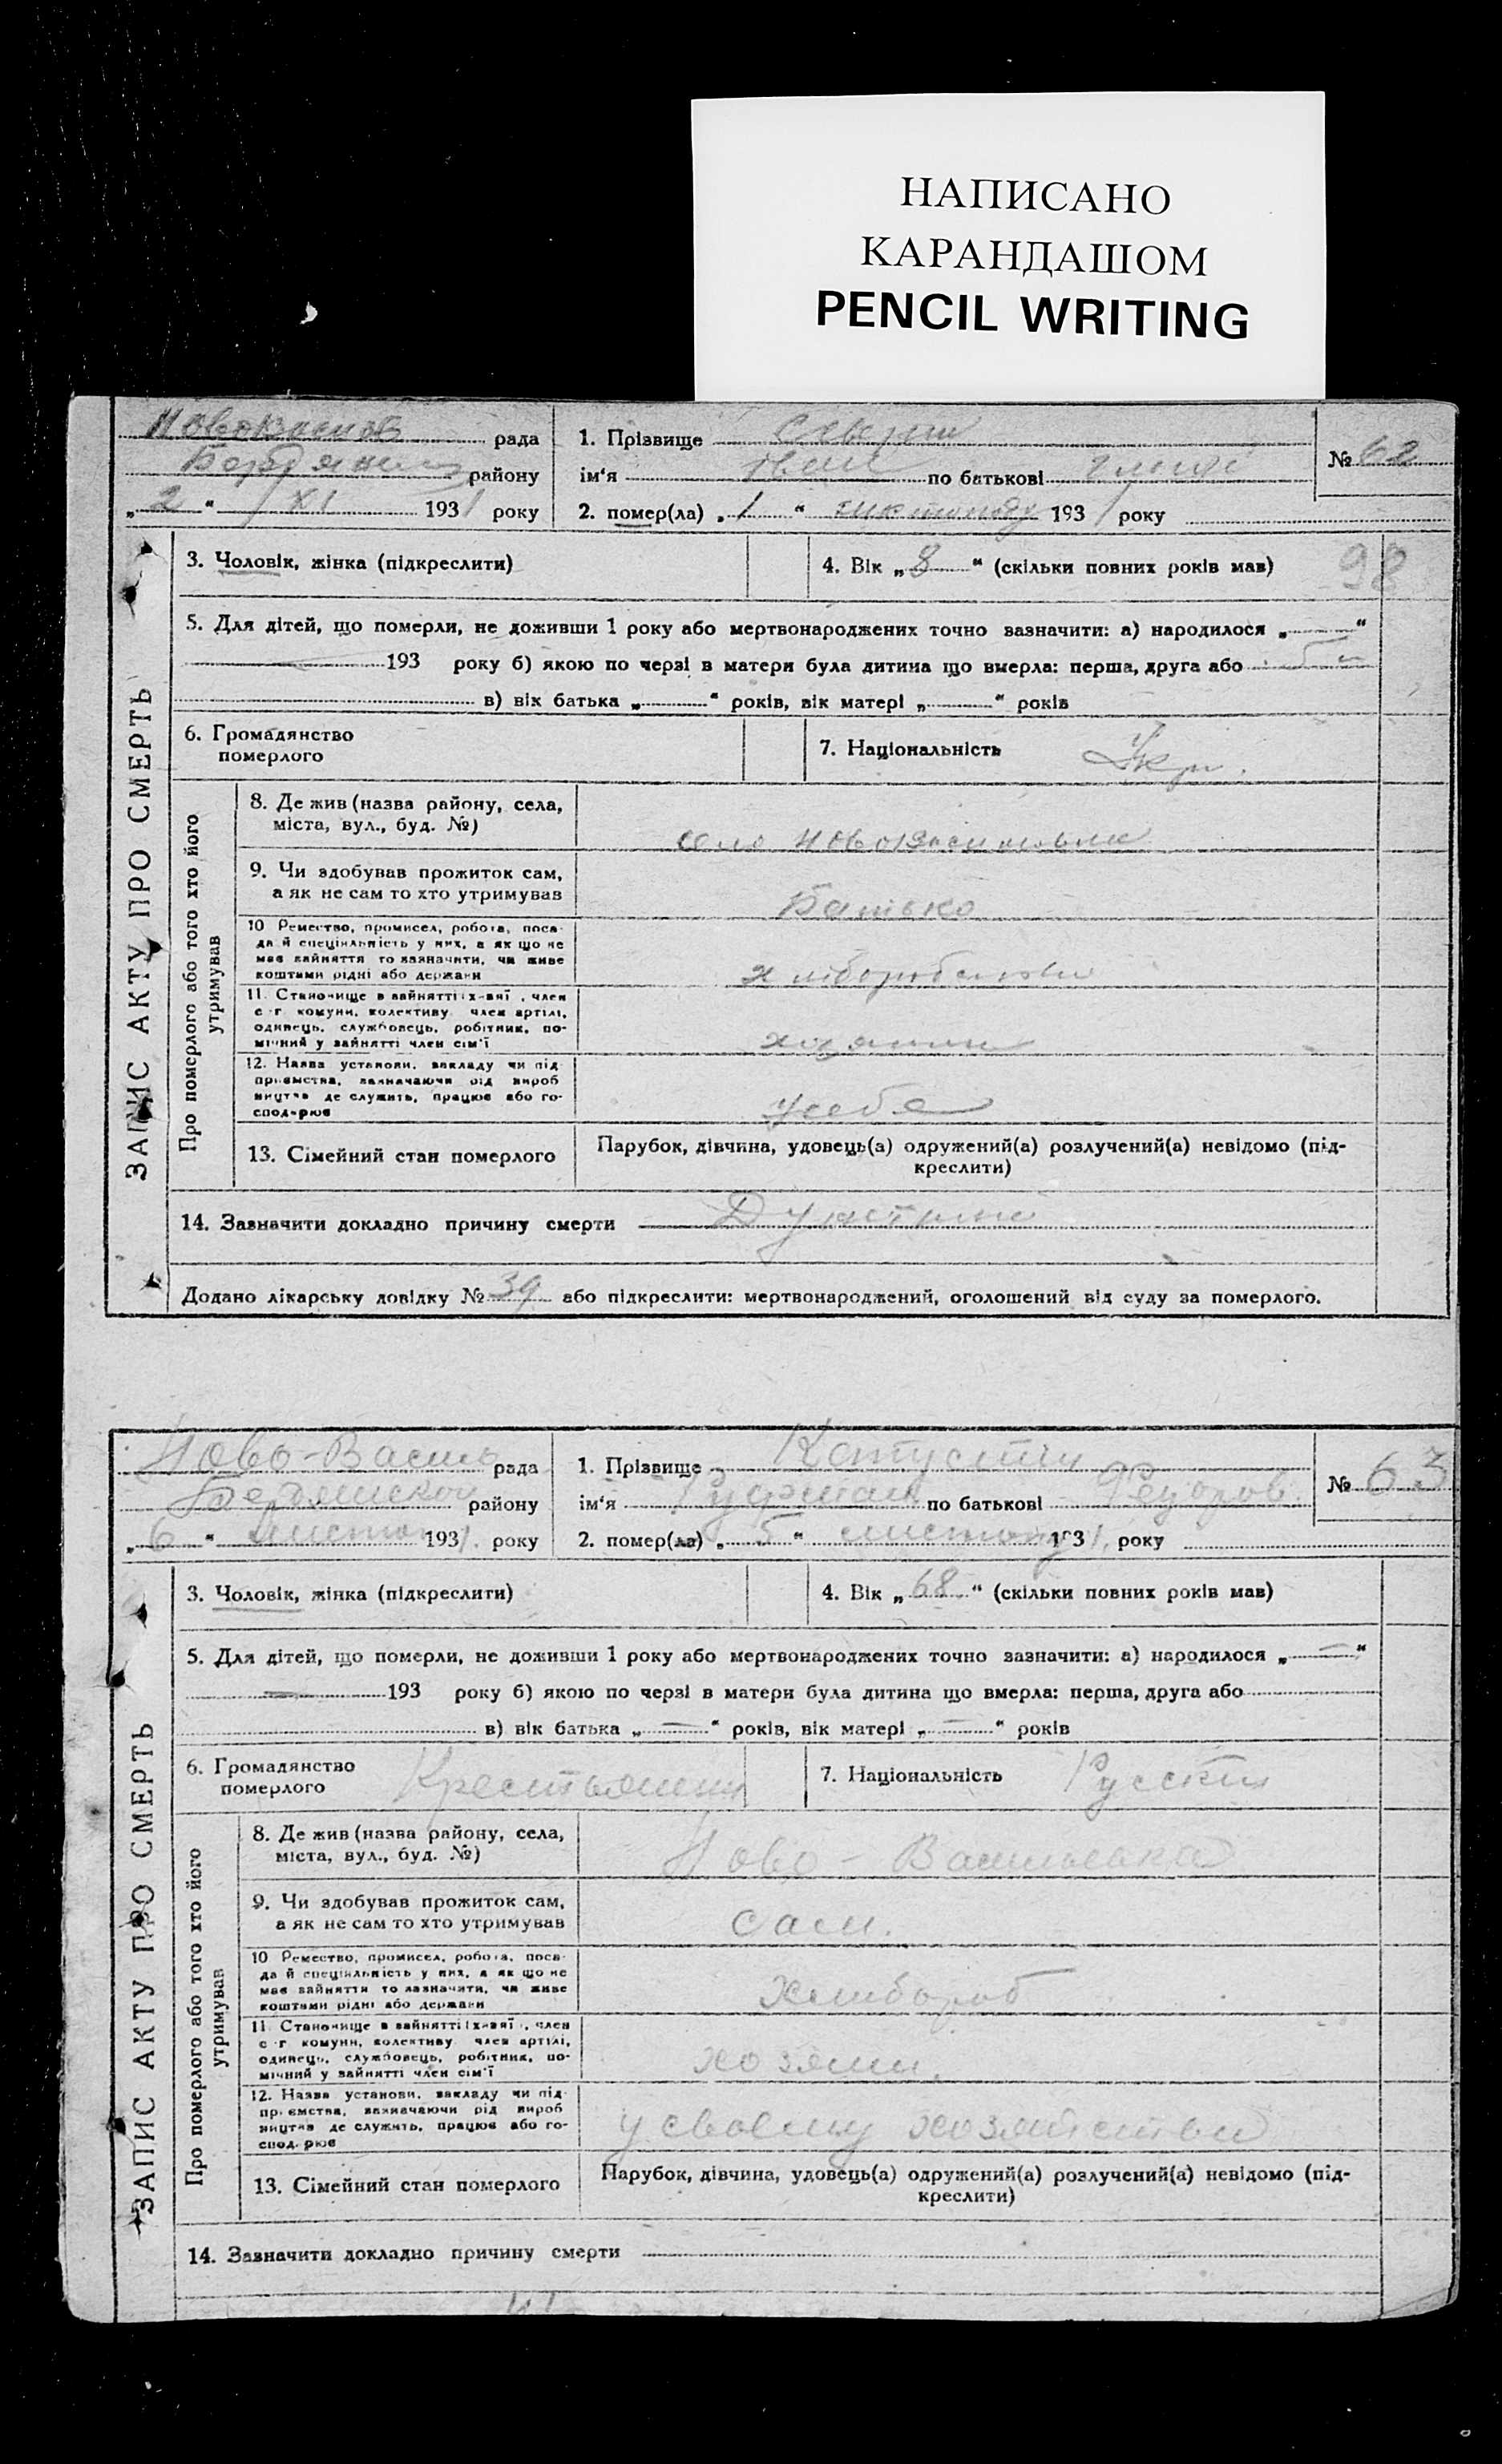 НАПИСАНО
КАРАНДАШОМ
PENCIL WRITING
рада
району
„ 2 “ XI 1931 року
1. Прізвище
ім'я Іван по батькові
2. помер(ла) „ 1 “ листопаду 1931 року
№ 62
ЗАПИС АКТУ ПРО СМЕРТЬ
3. Чоловік, жінка (підкреслити)
4. Вік „ 8 “ (скільки повних років мав)
98
5. Для дітей, що померли, не доживши 1 року або мертвонароджених точно зазначити: а) народилося „ “
193 року б) якою по черзі в матери була дитина що вмерла: перша, друга або
в) вік батька „ “ років, вік матері „ “ років
6. Громадянство
померлого
7. Національність Укр.
Про померлого або того хто його
утримував
8. Де жив (назва району, села,
міста, вул., буд. №)
село
9. Чи здобував прожиток сам,
а як не сам то хто утримував
Батько
10 Ремество, промисел, робота, поса-
да й спеціяльність у них, а як що не
має зайняття то зазначити, чи живе
коштами рідні або держави
11. Становище в зайнятті: , член
с-г комуни, колективу член артілі,
одинець, службовець, робітник, по-
мічний у зайнятті член сім'ї
хозяин
12. Назва установи, закладу чи під-
приємства, зазначаючи рід вироб
ництва де служить, працює або го-
сподарює
у себе
13. Сімейний стан померлого
Парубок, дівчина, удовець(а) одружений(а) розлучений(а) невідомо (під-
креслити)
14. Зазначити докладно причину смерти
Додано лікарську довідку № 39 або підкреслити: мертвонароджений, оголошений від суду за померлого.
Ново-Васил рада
району
„ 6 “ Листоп 1931. року
1. Прізвище
ім'я по батькові Федоров.
2. помер(ла) „ 5 “ листопаду 1931. року
№ 63
ЗАПИС АКТУ ПРО СМЕРТЬ
3. Чоловік, жінка (підкреслити)
4. Вік „ 68 “ (скільки повних років мав)
5. Для дітей, що померли, не доживши 1 року або мертвонароджених точно зазначити: а) народилося „ — “
— 193 року б) якою по черзі в матери була дитина що вмерла: перша, друга або
в) вік батька „ — “ років, вік матері „ — “ років
6. Громадянство
померлого
Крестьянин
7. Національність Русский
Про померлого або того хто його
утримував
8. Де жив (назва району, села,
міста, вул., буд. №)
Ново-Васильевка
9. Чи здобував прожиток сам,
а як не сам то хто утримував
Сам.
10 Ремество, промисел, робота, поса-
да й спеціяльність у них, а як що не
має зайняття то зазначити, чи живе
коштами рідні або держави
Хлибороб
11. Становище в зайнятті: , член
с-г комуни, колективу член артілі,
одинець, службовець, робітник, по-
мічний у зайнятті член сім'ї
хозяин.
12. Назва установи, закладу чи під-
приємства, зазначаючи рід вироб
ництва де служить, працює або го-
сподарює
у своему
13. Сімейний стан померлого
Парубок, дівчина, удовець(а) одружений(а) розлучений(а) невідомо (під-
креслити)
14. Зазначити докладно причину смерти